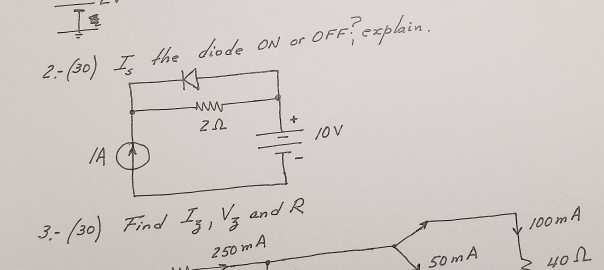 2.-(30) Is the diode ON or OFF? explain.
2Ω
+
10V
-
1A
3.- (30) Find Iz, Vz and R
250mA
100mA
50mA
40Ω